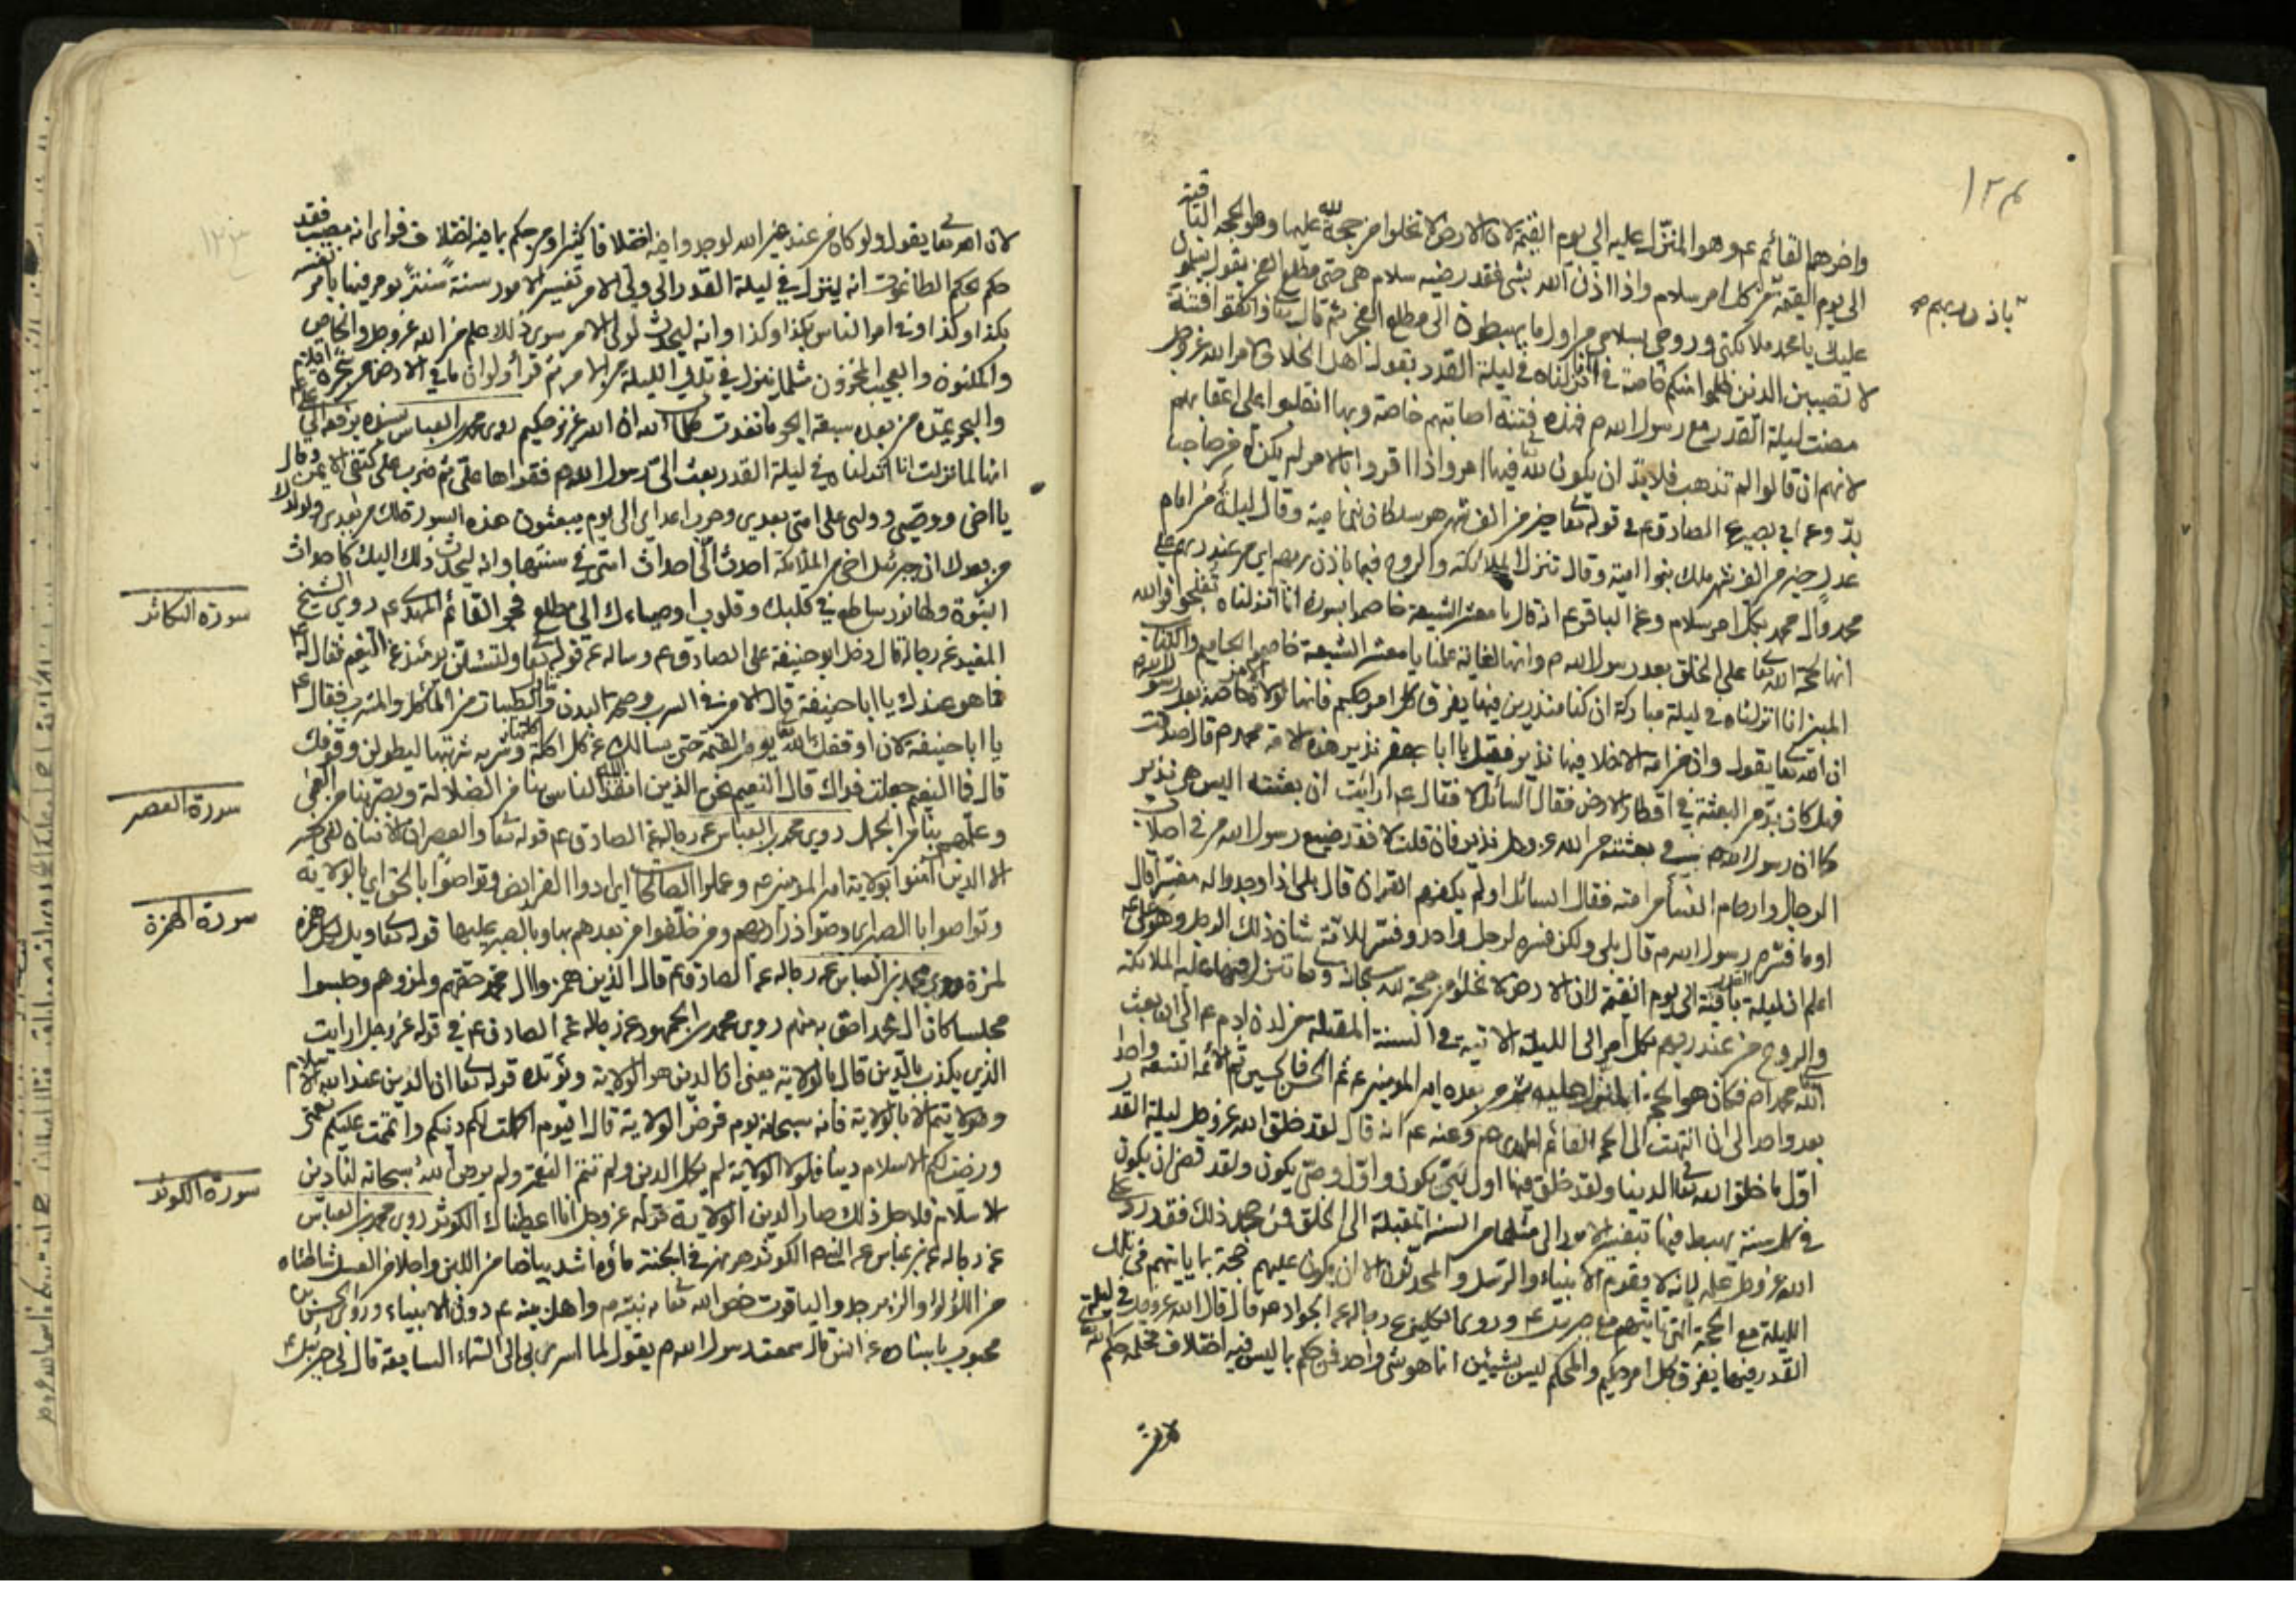 ١٢٤
واخرهم القائم عم وهو المنزل عليه الى يوم القيمة لان الارض لا تخلوا من حجة لله عليها وهو الحجة الباقية
الى يوم القيمة من كل امر سلام واذا اذن الله بشئ فقد رضيه سلام هى حتى مطلع الفجر يقول يسلم
باذن ربهم صح
عليك يا محمد ملائكتى وروحى بسلامى من اول ما يهبطون الى مطلع الفجر ثم قال تعا واتقوا فتنة
لا تصيبن الذين ظلموا منكم خاصة فى انا انزلناه فى ليلة القدر يقول اهل الخلاف لامر الله عز وجل
مضت ليلة القدر مع رسول الله ص فهذه فتنة اصابتهم خاصة وبها انقلبوا على اعقابهم
لانهم ان قالوا لم تذهب فلا بد ان يكون لله تع فيها امر واذا اقروا بالامر لم يكن له من صاحب
بد وعن ابى بصير عن الصادق عم فى قوله تعا خير من الف شهر هو سلطان بنى امية وقال ليلة من امام
عدل خير من الف شهر ملك بنوا امية وقال تنزل الملائكة والروح فيها باذن ربهم اى من عند ربهم على
محمد وال محمد بكل امر سلام وعن الباقر عم اذ قال يا معشر الشيعة خاصموا بسورة انا انزلناه تفلجوا فوالله
انها لحجة الله تعا على الخلق بعد رسول الله ص وانها لغاية علمنا يا معشر الشيعة خاصموا بحاميم والكتاب
المبين انا انزلناه فى ليلة مباركة انا كنا منذرين فيها يفرق كل امر حكيم فانها لولاة الامر خاصة بعد رسول الله ص
ان الله تعا يقول وان من امة الا خلا فيها نذير فقيل يا ابا جعفر نذير هذه الامة محمد ص قال صدقت
فهل كان بد من البعثة فى اقطار الارض فقال السائل لا فقال عم ارايت ان بعثته اليس هو نذير
كما ان رسول الله ص فى بعثته من الله عز وجل نذير فان قلت لا فقد ضيع رسول الله من فى اصلاب
الرجال وارحام النساء من امته فقال السائل اولم يكفهم القران قال بلى اذا وجدوا له مفسرا قال
اوما فسره رسول الله ص قال بلى ولكن فسره لرجل واحد وفسر للامة شان ذلك الرجل وهو على عم
اعلم ان ليلة القدر باقية الى يوم القيمة لان الارض لا تخلوا من حجة لله سبحانه وتعا تنزل فيها عليه الملائكة
والروح من عند ربهم بكل امر الى الليلة الاتية فى السنة المقبلة من لدن ادم عم الى ان بعث
الله محمدا ص فكان هو الحجة المنزل عليه ثم من بعده امير المؤمنين عم ثم الحسن فالحسين ثم الائمة التسعة واحد
بعد واحد الى ان انتهت الى الحجة القائم المهدى عم وعنه عم انه قال لقد خلق الله عز وجل ليلة القدر
اول ما خلق الله تعا الدنيا ولقد خلق فيها اول نبى يكون واول وصى يكون ولقد قضى ان يكون
فى كل سنة يهبط فيها تفسير الامور الى مثلها من السنة المقبلة الى الخلق فمن جحد ذلك فقد رد على
الله عز وجل علمه لانه لا يقوم الانبياء والرسل والمحدثون الا ان يكون عليهم حجة بما ياتيهم فى تلك
الليلة مع الحجة التى تاتيهم مع جبريل عم وروى الكلينى عن رجاله عن الجواد عم قال قال الله عز وجل فى ليلة
القدر فيها يفرق كل امر حكيم والمحكم ليس بشيئين انما هو شئ واحد فمن حكم بما ليس فيه اختلاف فحكمه حكم الله تعا
لان
١٢٣
لان امر تعا يقول ولو كان من عند غير الله لوجدوا فيه اختلافا كثيرا ومن حكم بما فيه اختلاف فراى انه مصيب فقد
حكم بحكم الطاغوت انه لينزل فى ليلة القدر الى ولى الامر تفسير الامور سنة سنة يؤمر فيها بامر نفسه
بكذا وكذا وفى امر الناس بكذا وكذا وانه ليحدث لولى الامر سوى ذلك علم من الله عز وجل والخاص
والمكنون والعجيب المخزون مثل ما ينزل فى تلك الليلة من الامر ثم قرأ ولو ان ما فى الارض من شجرة اقلام
والبحر يمده من بعده سبعة ابحر ما نفدت كلمات الله ان الله عزيز حكيم روى محمد بن العباس بسنده يرفعه الى على عم
انها لما نزلت انا انزلناه فى ليلة القدر بعث الى رسول الله ص فقراها على ثم ضرب على كتفى الايمن وقال
يا اخى ووصيى وولى على امتى بعدى وحرب اعداى الى يوم يبعثون هذه السورة لك من بعدى ولولدك
من بعدك ان جبرئيل اخى من الملائكة احدث الى احداث امتى فى سنتها وانه ليحدث ذلك اليك كاحداث
النبوة ولها نور ساطع فى قلبك وقلوب اوصياءك الى مطلع فجر القائم المهدى عم روى الشيخ
سورة التكاثر
المفيد عن رجاله قال دخل ابو حنيفة على الصادق عم وساله عن قوله تعا ولتسئلن يومئذ عن النعيم فقال له عم
فما هو عندك يا ابا حنيفة قال الامن فى السرب وصحة البدن والطيبات من المأكل والمشرب فقال عم
يا ابا حنيفة لان اوقفك الله تعا يوم القيمة حتى يسالك عن كل اكلة اكلتها وشربة شربتها ليطولن وقوفك
قال فما النعيم جعلت فداك قال النعيم نحن الذين انقذ الله الناس بنا من الضلالة وبصرهم بنا من العمى
سورة العصر
وعلمهم بنا من الجهل روى محمد بن العباس عن رجاله عن الصادق عم قوله تعا والعصر ان الانسان لفى خسر
الا الذين امنوا بولاية امير المؤمنين عم وعملوا الصالحات اى ادوا الفرايض وتواصوا بالحق اى بالولاية
وتواصوا بالصبر اى وصوا ذراريهم ومن خلفوا من بعدهم بها وبالصبر عليها قوله تعا ويل لكل همزة
سورة الهمزة
لمزة روى محمد بن العباس عن رجاله عن الصادق عم قال الذين همزوا ال محمد حقهم ولمزوهم وجلسوا
مجلسا كان ال محمد احق به منهم روى محمد بن الجمهور عن رجاله عن الصادق عم فى قوله عز وجل ارايت
الذى يكذب بالدين قال بالولاية يعنى ان الدين هو الولاية ويؤيده قوله تعا ان الدين عند الله الاسلام
وهو لا يتم الا بالولاية فانه سبحانه يوم فرض الولاية قال اليوم اكملت لكم دينكم واتممت عليكم نعمتى
ورضيت لكم الاسلام دينا فلولا الولاية لم يكمل الدين ولم تتم النعمة ولم يرض الله سبحانه لنا دين
سورة الكوثر
الاسلام فلاجل ذلك صار الدين الولاية قوله عز وجل انا اعطيناك الكوثر روى محمد بن العباس
عن رجاله عن ابن عباس عن النبى ص الكوثر هو نهر فى الجنة ماؤه اشد بياضا من اللبن واحلا من العسل شاطئاه
من اللؤلؤ والزبرجد والياقوت خص الله تعا به نبيه ص واهل بيته عم دون الانبياء وروى الحسن بن
محبوب باسناده عن انس قال سمعت رسول الله ص يقول لما اسرى بى الى السماء السابعة قال لى جبرئيل